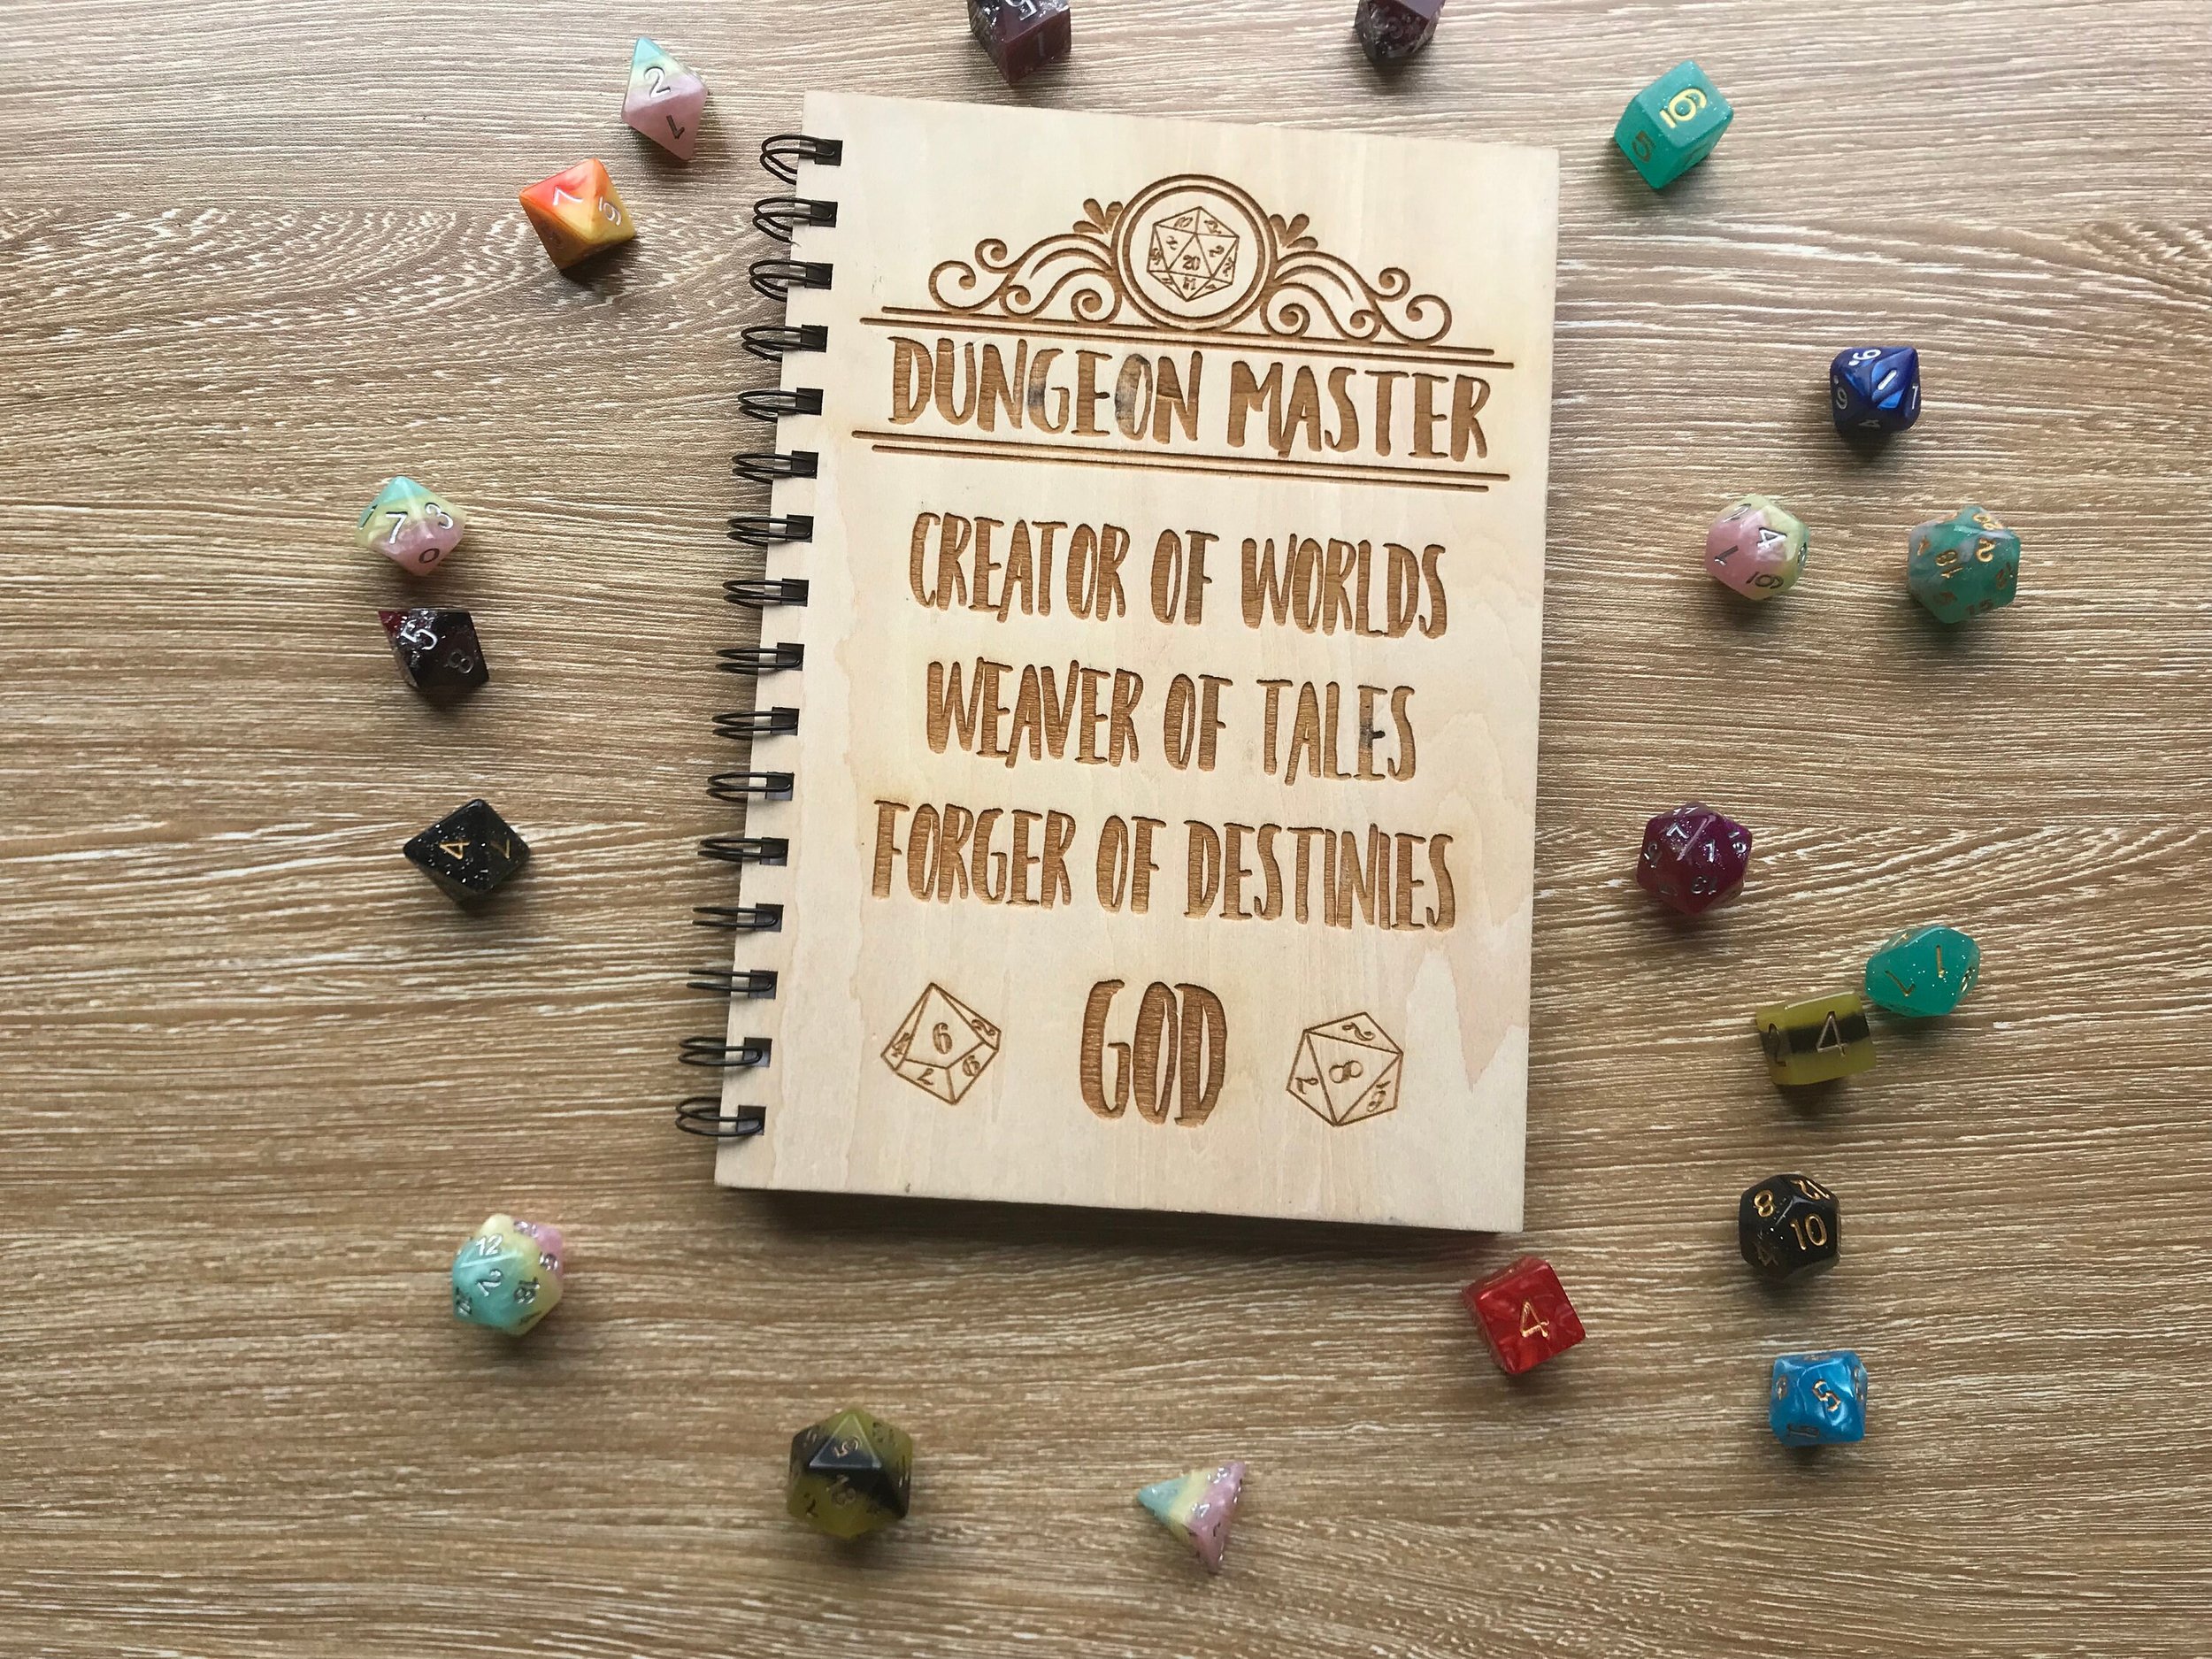 DUNGEON MASTER
CREATOR OF WORLDS
WEAVER OF TALES
FORGER OF DESTINIES
GOD